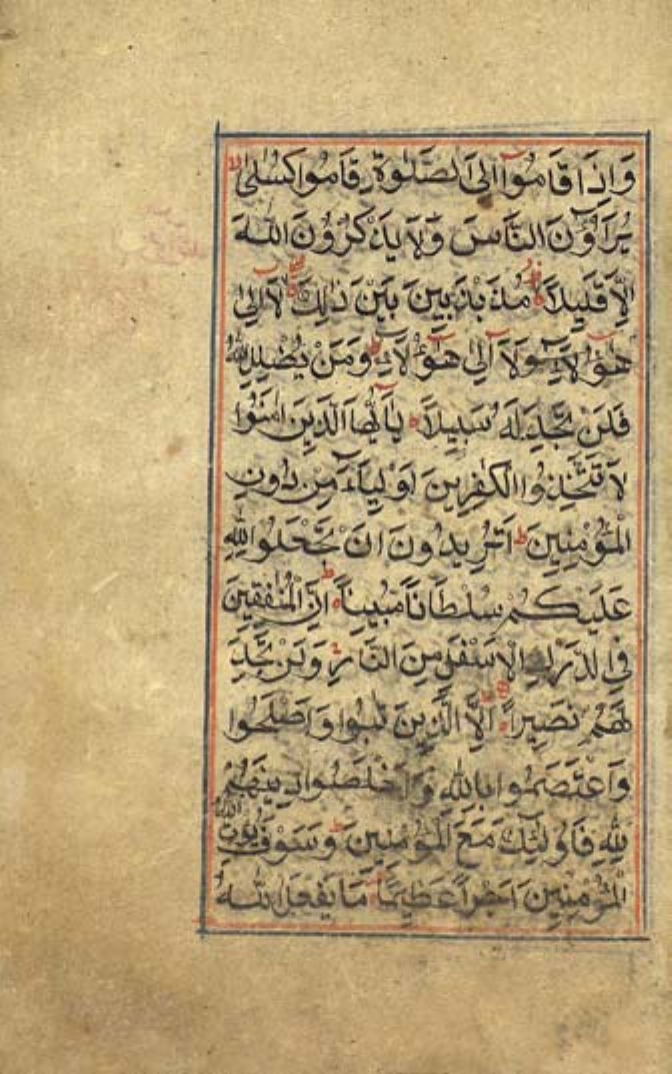 وَاِذَا قَامُوْٓا اِلَى الصَّلٰوةِ قَامُوا كُسَالٰى
يُرَآؤُنَ النَّاسَ وَلَا يَذْكُرُوْنَ اللّٰهَ
اِلَّا قَلِيلًا مُذَبْذَبِينَ بَيْنَ ذٰلِكَ لَا اِلٰى
هٰٓؤُلَآءِ وَلَآ اِلٰى هٰٓؤُلَآءِ وَمَنْ يُضْلِلِ اللّٰهُ
فَلَنْ تَجِدَ لَهُ سَبِيلًا يٰٓاَيُّهَا الَّذِيْنَ اٰمَنُوا
لَا تَتَّخِذُوا الْكٰفِرِينَ اَوْلِيَآءَ مِنْ دُونِ
الْمُؤْمِنِينَ اَتُرِيدُونَ اَنْ تَجْعَلُوا لِلّٰهِ
عَلَيْكُمْ سُلْطَانًا مُبِينًا اِنَّ الْمُنٰفِقِينَ
فِى الدَّرْكِ الْاَسْفَلِ مِنَ النَّارِ وَلَنْ تَجِدَ
لَهُمْ نَصِيرًا اِلَّا الَّذِينَ تَابُوا وَاَصْلَحُوا
وَاعْتَصَمُوا بِاللّٰهِ وَاَخْلَصُوا دِينَهُمْ
لِلّٰهِ فَاُولٰٓئِكَ مَعَ الْمُؤْمِنِينَ وَسَوْفَ يُؤْتِ اللّٰهُ
الْمُؤْمِنِينَ اَجْرًا عَظِيمًا مَا يَفْعَلُ اللّٰهُ